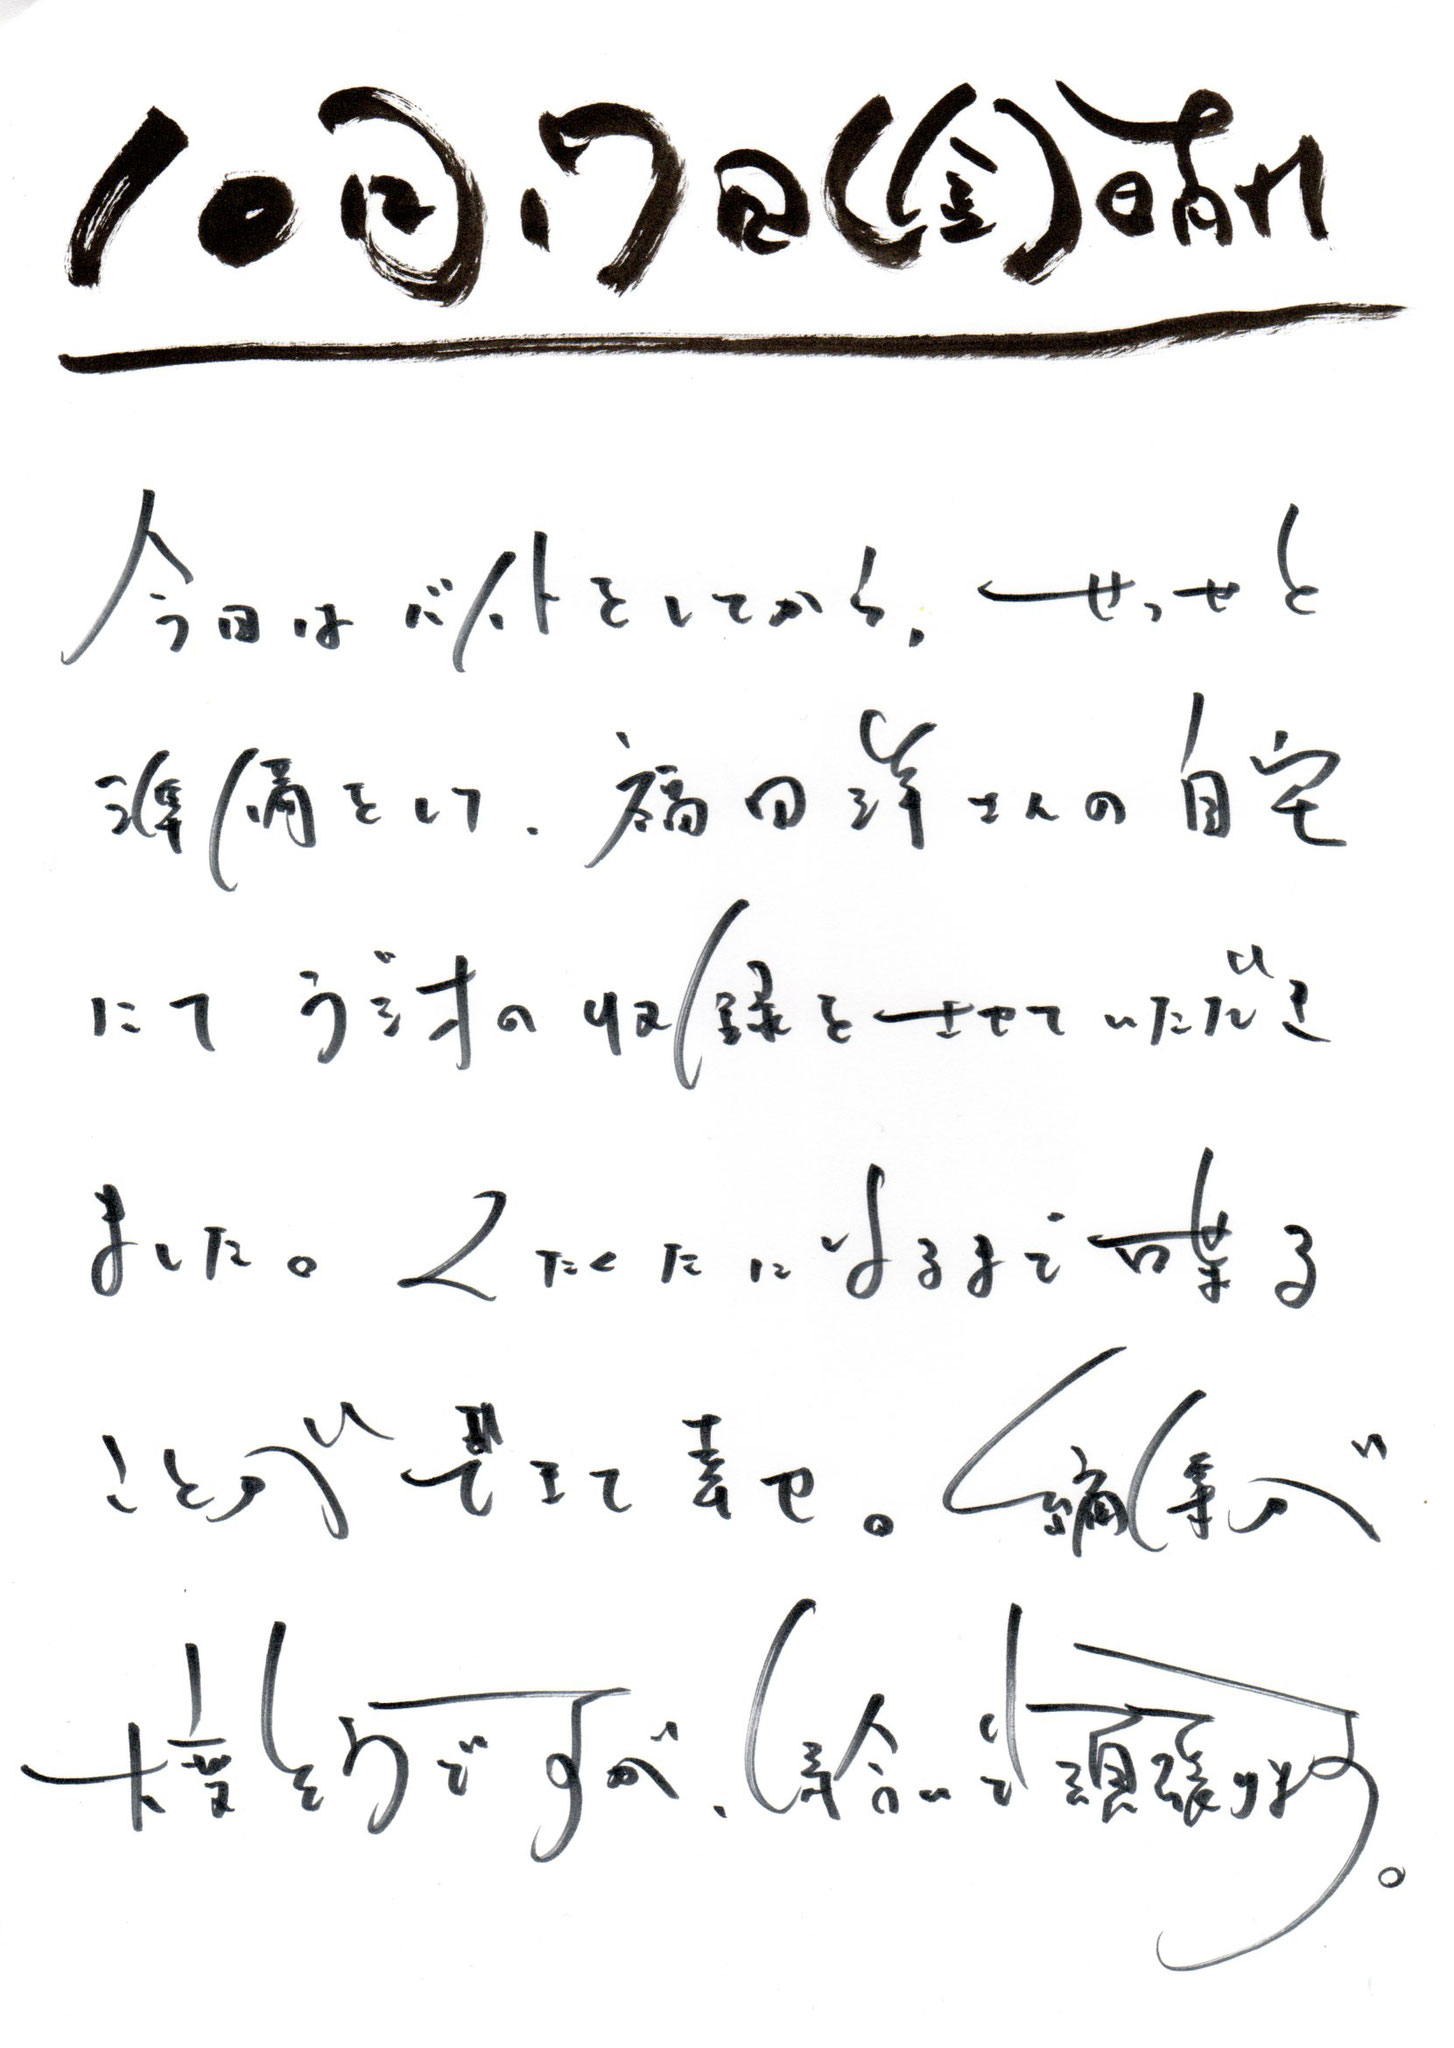 10月17日(金)晴れ
今日はバイトをしてから、せっせと
準備をして、福田洋さんの自宅
にてラジオの収録をさせていただき
ました。くたくたになるまで喋る
ことが出来て幸せ。編集が
大変そうですが、気合いで頑張ります。